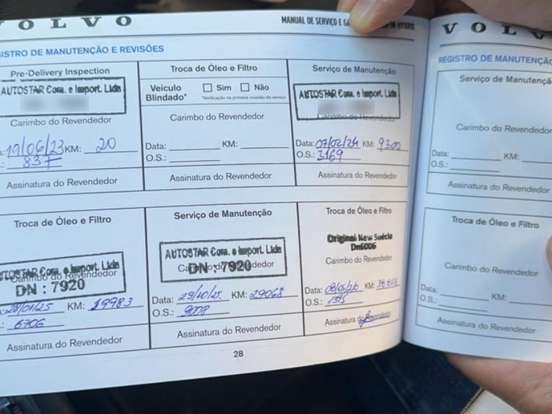 VOLVO
MANUAL DE SERVIÇO E
REGISTRO DE MANUTENÇÃO E REVISÕES
Pre-Delivery Inspection
AUTOSTAR Com. e Import. Ltda
Carimbo do Revendedor
19/06/23 KM: 20
837
Assinatura do Revendedor
Troca de Óleo e Filtro
Veículo Blindado* Sim Não
Carimbo do Revendedor
Data: KM:
O.S.:
Assinatura do Revendedor
Serviço de Manutenção
AUTOSTAR Com. e Import. Ltda
Carimbo do Revendedor
Data: 07/02/24 KM: 9300
O.S.: 3169
Assinatura do Revendedor
Troca de Óleo e Filtro
AUTOSTAR Com. e Import. Ltda
Carimbo do Revendedor
DN : 7920
/01/25 KM: 19983
6706
Assinatura do Revendedor
Serviço de Manutenção
AUTOSTAR Com. e Import. Ltda
Carimbo do Revendedor
DN : 7920
Data: 29/10/25 KM: 29063
O.S.:
Assinatura do Revendedor
Troca de Óleo e Filtro
Original New Suécia
Dn6006
Carimbo do Revendedor
Data: KM:
O.S.:
Assinatura do Revendedor
28
VOLVO
REGISTRO DE MANUTENÇÃO
Serviço de Manutenção
Carimbo do Revendedor
Data: KM:
O.S.:
Assinatura do Revendedor
Troca de Óleo e Filtro
Carimbo do Revendedor
Data: KM:
O.S.:
Assinatura do Revendedor